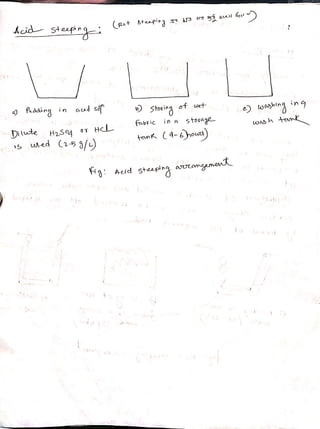 Acid steeping: (Rot steeping
a) Padding in acid sol
Dilute H2SO4 or HCL
is used (2-5 g/L)
b) Storing of wet
fabric in a storage
tank (4-6 hours)
c) washing in a
wash tank
Fig: Acid steeping arrangement